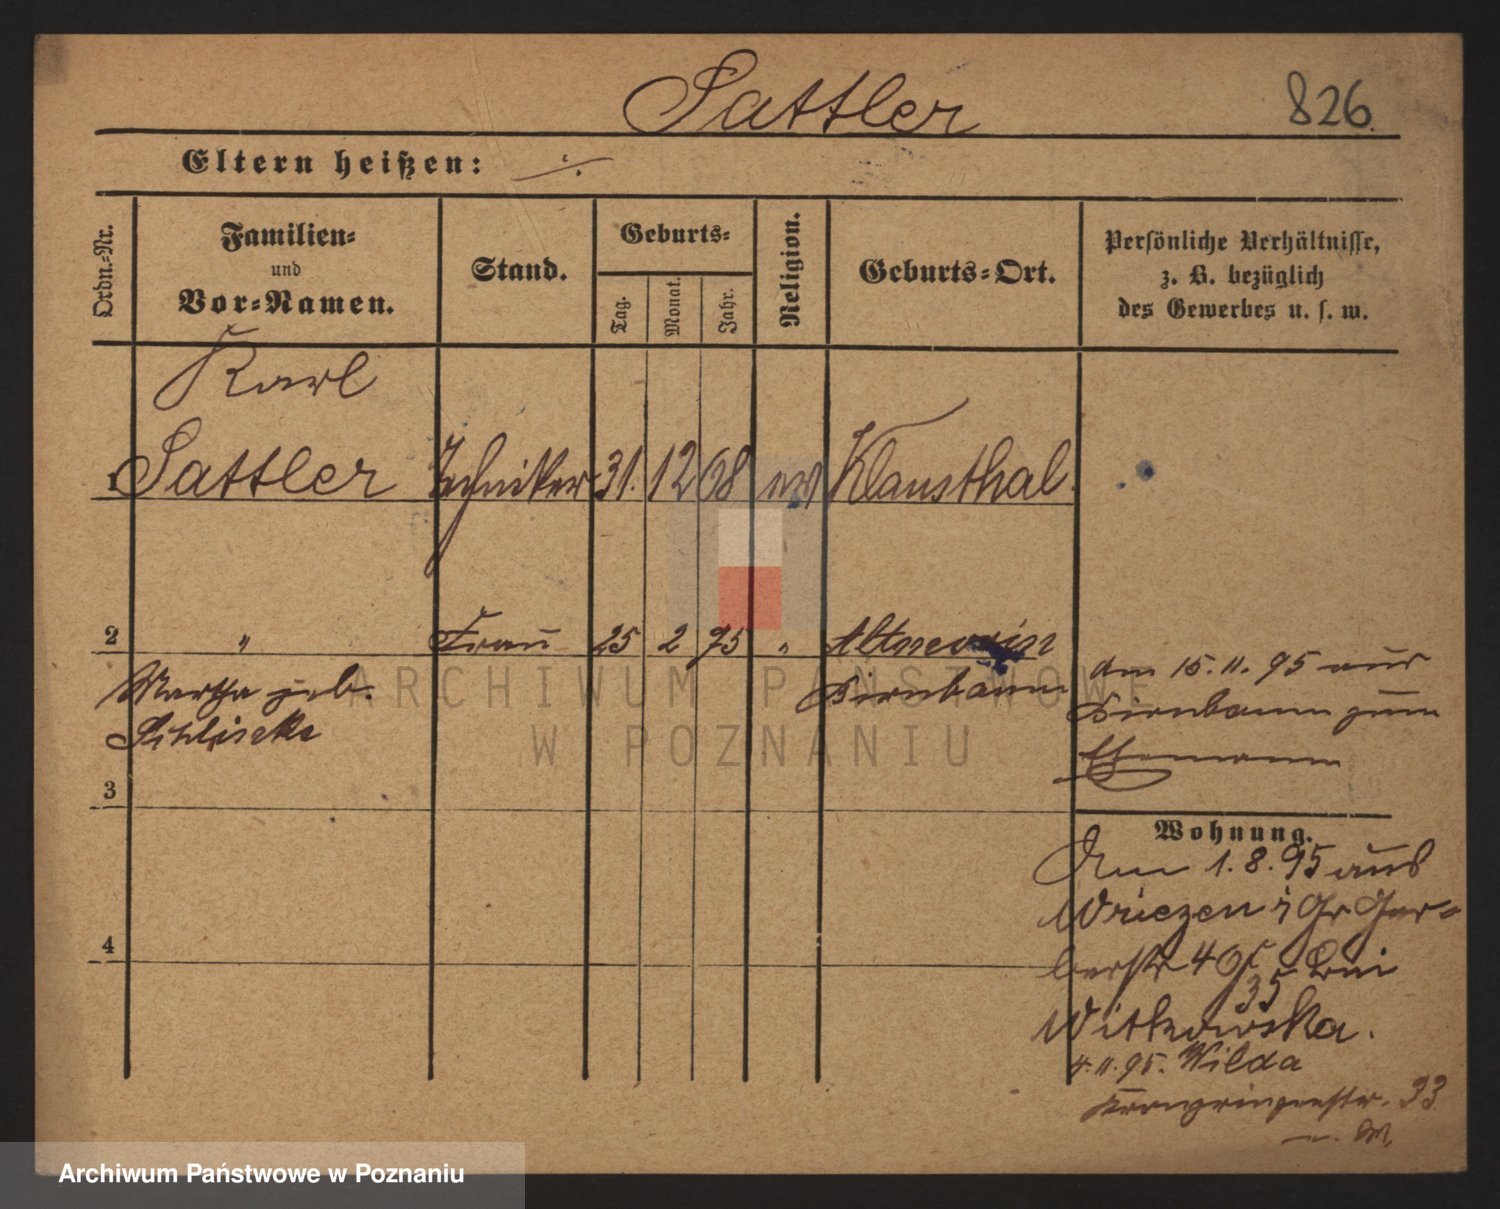 Sattler
826.
Eltern heißen: ./.
Ordn.-Nr.
Familien-
und
Vor-Namen.
Stand.
Geburts-
Tag.
Monat.
Jahr.
Religion.
Geburts-Ort.
Persönliche Verhältnisse,
z. B. bezüglich
des Gewerbes u. s. w.
Karl
1 Sattler Techniker 31. 12 68 ev Klausthal.
2 " Frau 25 2 75 "
Martha geb. Birnbaum
am 15.11.95 aus
Birnbaum zum
Ehemann
3
Wohnung.
Am 1.8.95 aus
Wriezen Gr Ger-
berstr 40 bei
35
Witkowska.
4
4.11.95. Wilda
Kronprinzenstr. 33
ARCHIWUM PAŃSTWOWE
W POZNANIU
Archiwum Państwowe w Poznaniu